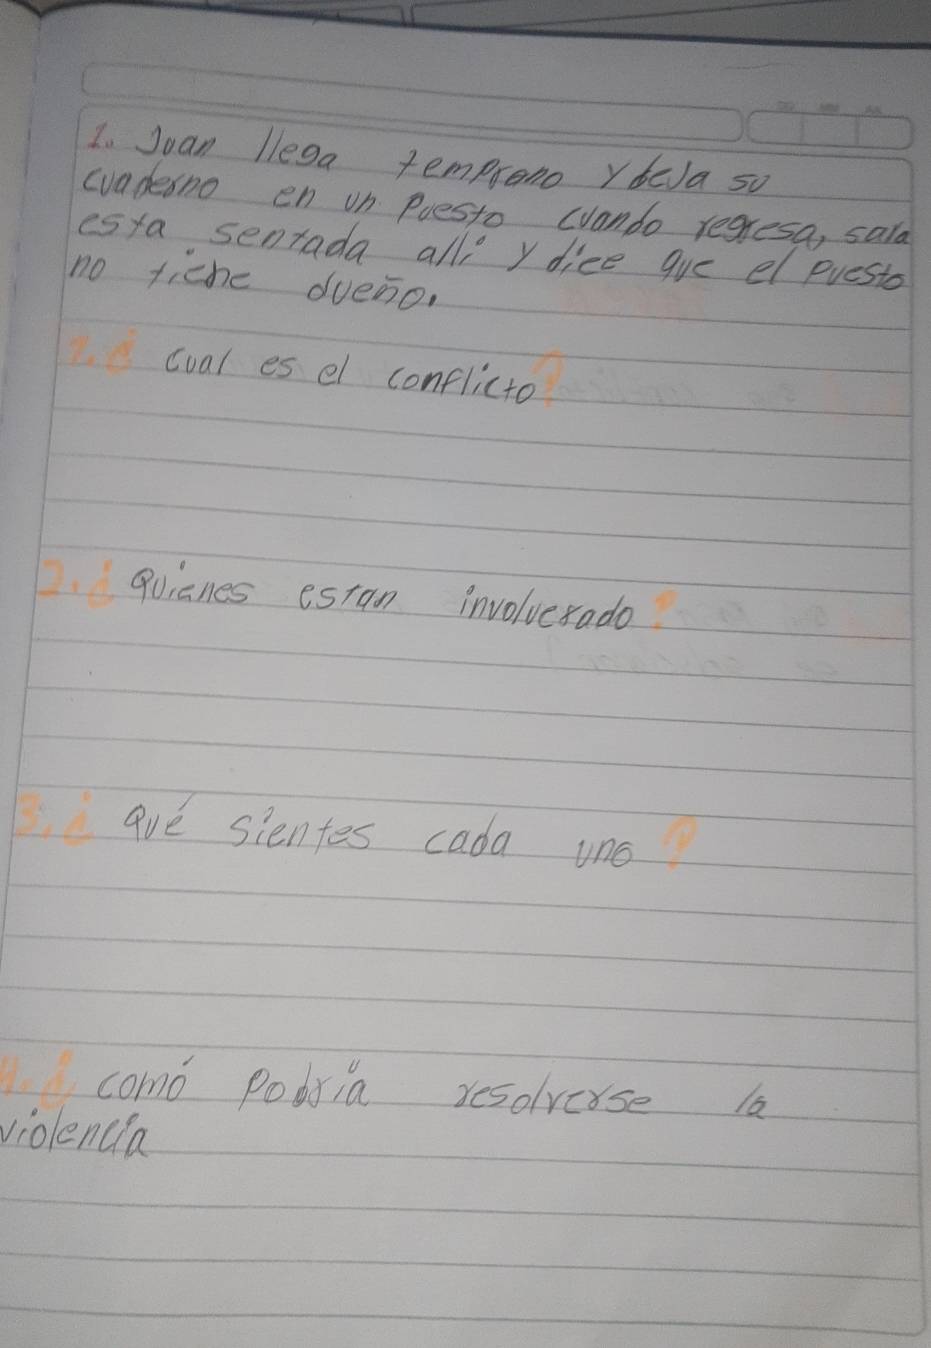 1. Juan llega temprano y deja su
cuaderno en un puesto cuando regresa, sara
esta sentada alli y dice que el puesto
no tiene dueño.
1. ¿ cual es el conflicto?
2. ¿ Quienes estan involucrado?
3. ¿ Qué sientes cada uno?
4. ¿ comó podría resolverse la
violencia